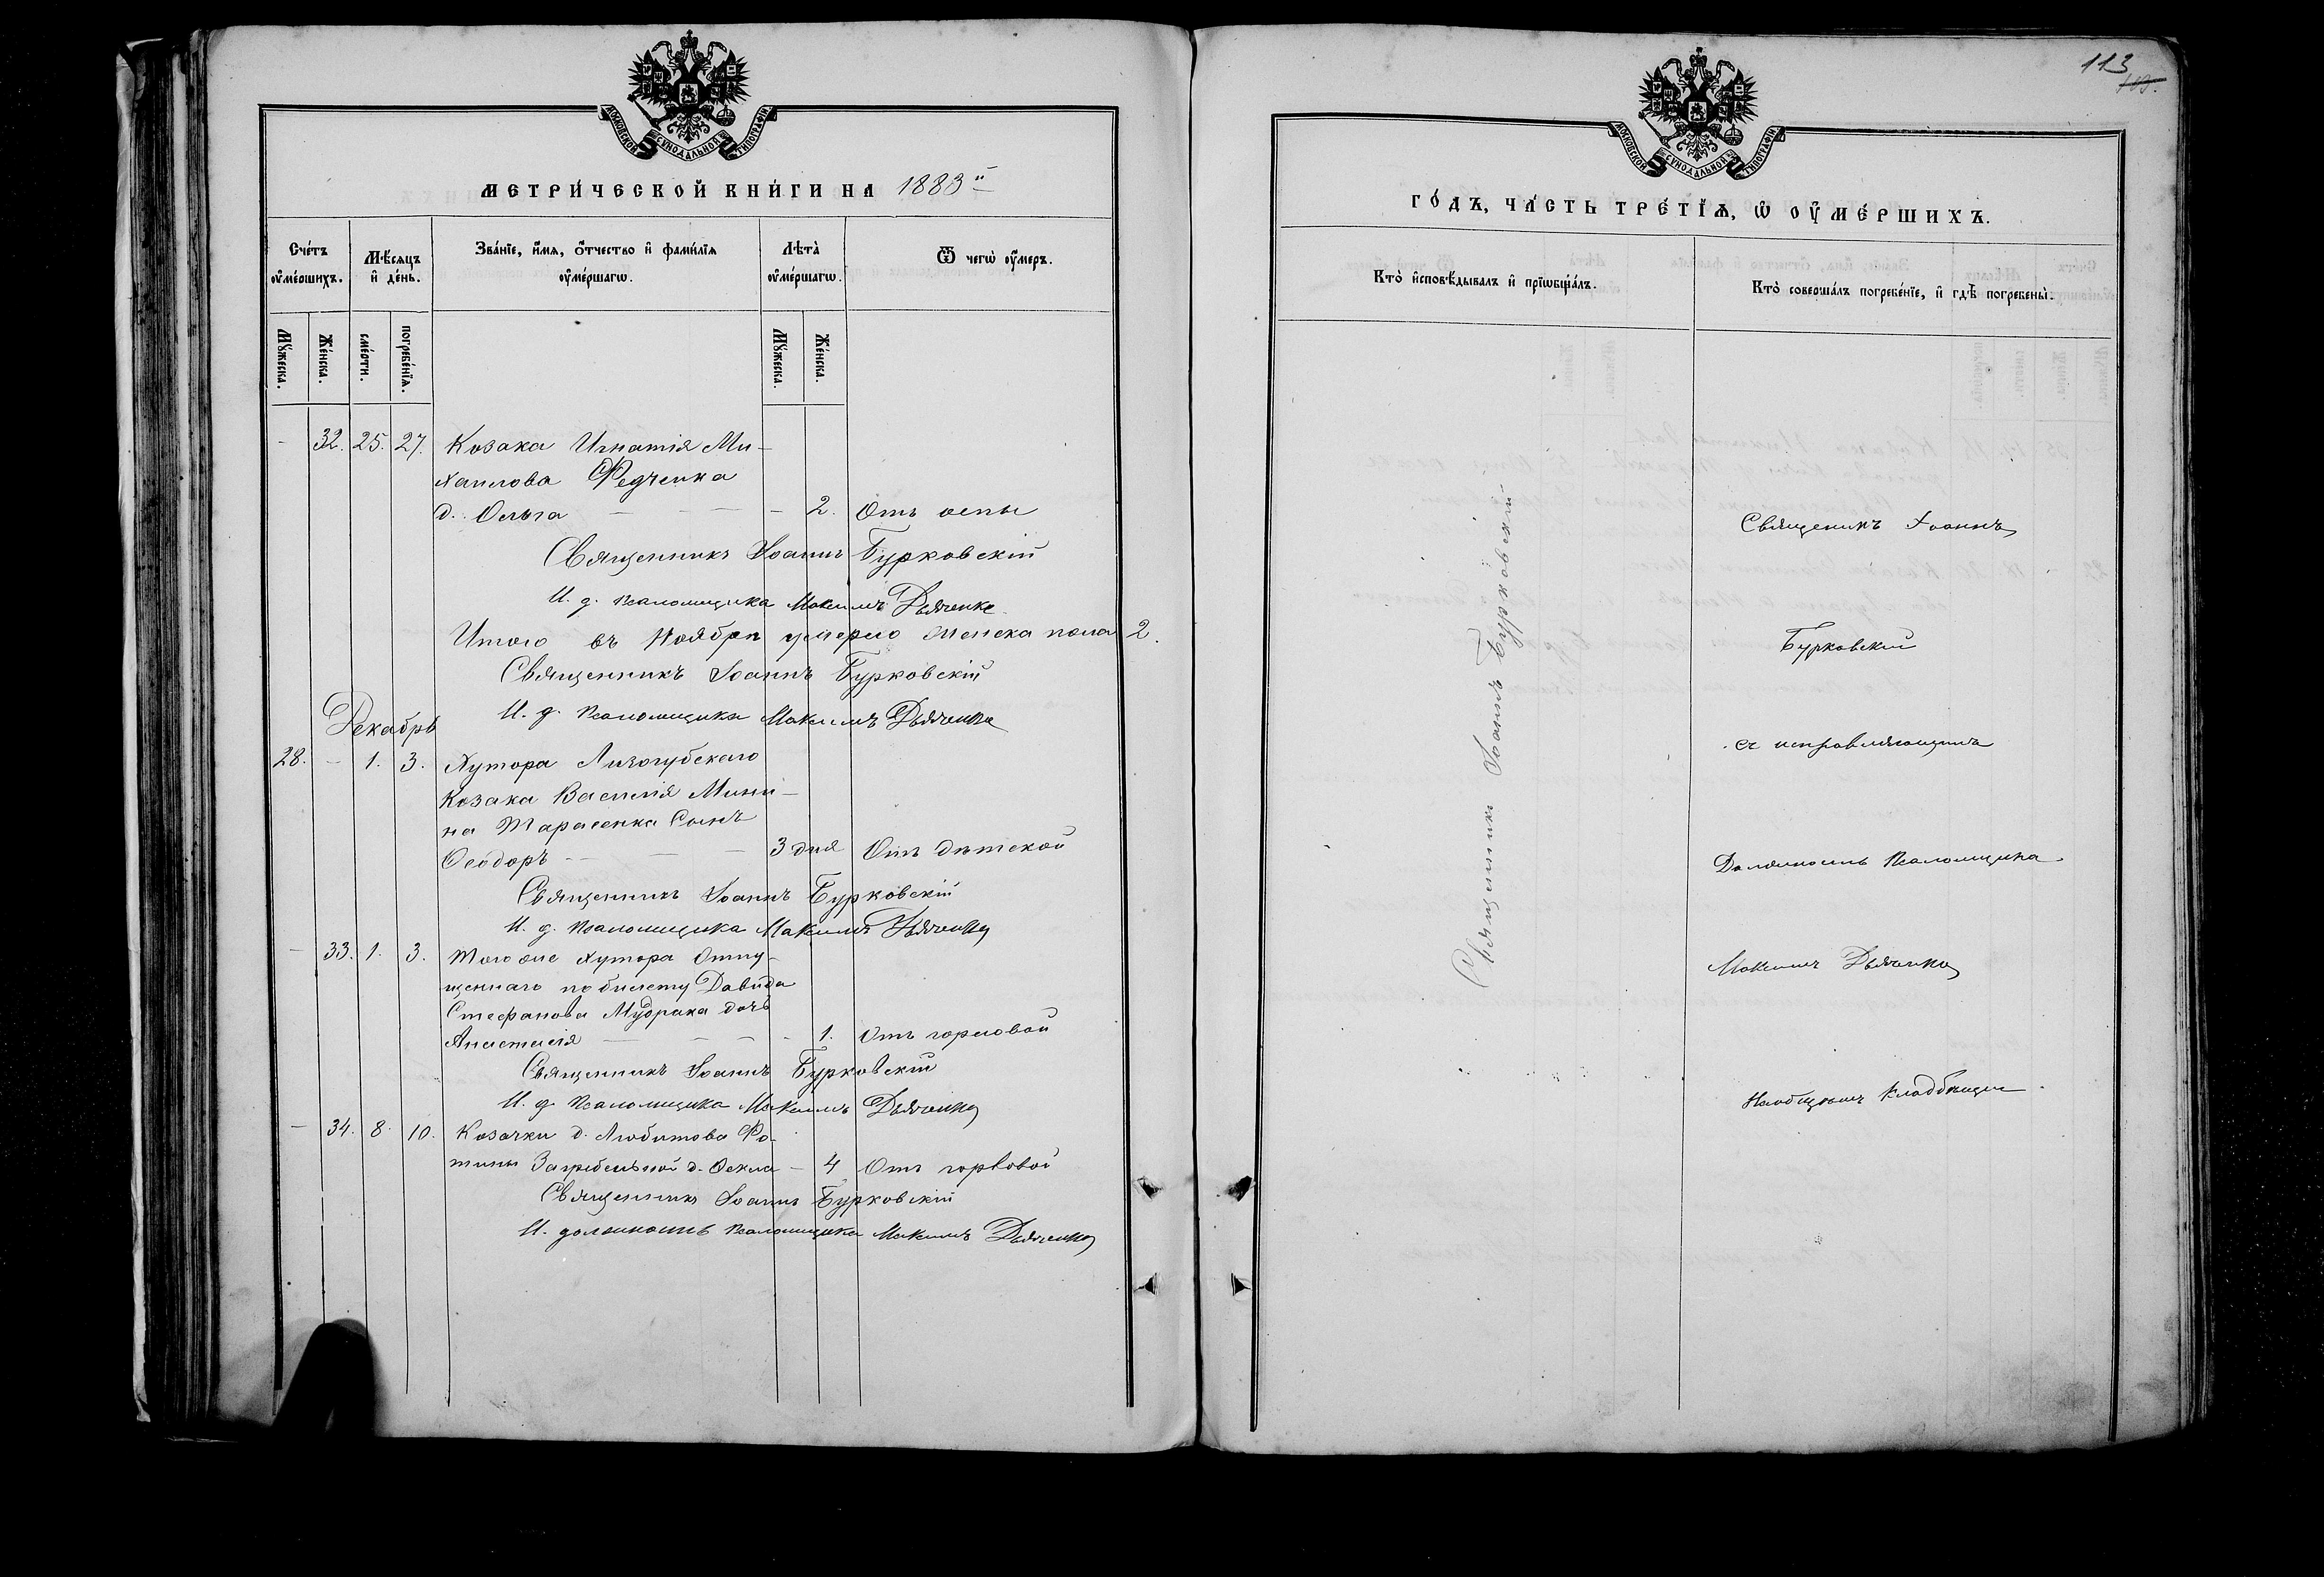 МОСКОВСКОЙ СѴНОДАЛЬНОЙ ТИПОГРАФІИ
МЕТРИ́ЧЕСКОЙ КНИ́ГИ НА 1883й
Сче́тъ ᲂу҆ме́ршихъ.
Мѣ́сяцъ и҆ де́нь.
Зва́нїе, и҆́мя, ѻ҆́тчество и҆ фами́лїя ᲂу҆ме́ршагѡ.
Лѣта̀ ᲂу҆ме́ршагѡ.
Ѿ чегѡ̀ ᲂу҆́меръ.
Мꙋ́жеска.
Же́нска.
сме́рти.
погребе́нїѧ.
Мꙋ́жеска.
Же́нска.
- 32. 25. 27. Козака Игнатія Ми-
хаилова Федченка
д. Ольга - 2. Отъ оспы
Священникъ Іоаннъ Бурковскій
И. д. псаломщика Максимъ Дьяченко
Итого въ Ноябрѣ умерло женска пола 2.
Священникъ Іоаннъ Бурковскій
И. д. псаломщика Максимъ Дьяченко
Декабрь
28. - 1. 3. Хутора Лизогубскаго
Козака Василія Мини-
на Тарасенка Сынъ
Ѳеодоръ - 3 дня Отъ дѣтской
Священникъ Іоаннъ Бурковскій
И. д. псаломщика Максимъ Дьяченко
- 33. 1. 3. Того же хутора Отпу-
щеннаго по билету Давида
Стефанова Мудрака дочь
Анастасія - 1. Отъ горловой
Священникъ Іоаннъ Бурковскій
И. д. псаломщика Максимъ Дьяченко
- 34. 8. 10. Козачки д. Любитова Фо-
тины Загребельной д. Ѳекла - 4 Отъ горловой
Священникъ Іоаннъ Бурковскій
И. должность псаломщика Максимъ Дьяченко
113
103.
МОСКОВСКОЙ СѴНОДАЛЬНОЙ ТИПОГРАФІИ
ГО́ДЪ, ЧА́СТЬ ТРЕ́ТЇѦ, Ѡ҆ ОУ҆МЕ́РШИХЪ.
Кто̀ и҆сповѣ́дывалъ и҆ прїѡбща́лъ.
Кто̀ соверша́лъ погребе́нїе, и҆ гдѣ̀ погребены̀.
Священникъ Іоаннъ Бурковскій
Священикъ Іоаннъ
Бурковскій
съ исправляющимъ
Должность Псаломщика
Максимъ Дьяченко
На общемъ кладбищѣ